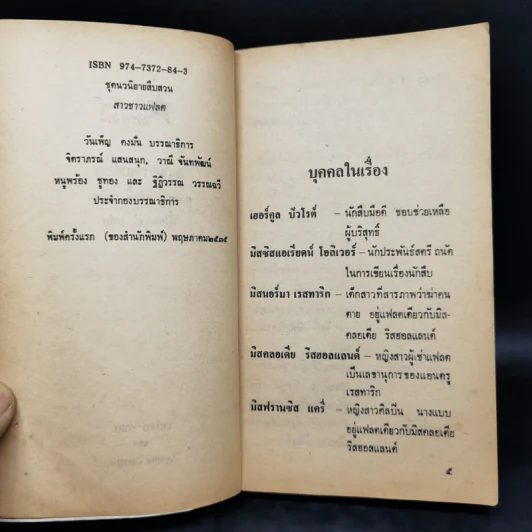 ISBN 974-7372-84-3
ชุดนวนิยายสืบสวน
สาวชาวแฟลต
วันเพ็ญ คงมั่น บรรณาธิการ
จิตราภรณ์ แสนสนุก, วาณี จันทพัฒน์
หนูพร้อง ชูทอง และ ฐิฏิวรรณ วรรณฉวี
ประจำกองบรรณาธิการ
พิมพ์ครั้งแรก (ของสำนักพิมพ์) พฤษภาคม ๒๕๓๕
บุคคลในเรื่อง
เฮอร์คูล ปัวโรต์ – นักสืบมือดี ชอบช่วยเหลือ
ผู้บริสุทธิ์
มิสซิสแอเรียดน์ โอลิเวอร์ – นักประพันธ์สตรี ถนัด
ในการเขียนเรื่องนักสืบ
มิสนอร์มา เรสทาริก – เด็กสาวที่สารภาพว่าฆ่าคน
ตาย อยู่แฟลตเดียวกับมิส-
คลอเดีย ริสฮอลแลนด์
มิสคลอเดีย ริสฮอลแลนด์ – หญิงสาวผู้เช่าแฟลต
เป็นเลขานุการของแอนดรู
เรสทาริก
มิสฟรานซิส แครี่ – หญิงสาวศิลปิน นางแบบ
อยู่แฟลตเดียวกับมิสคลอเดีย
ริสฮอลแลนด์
๕